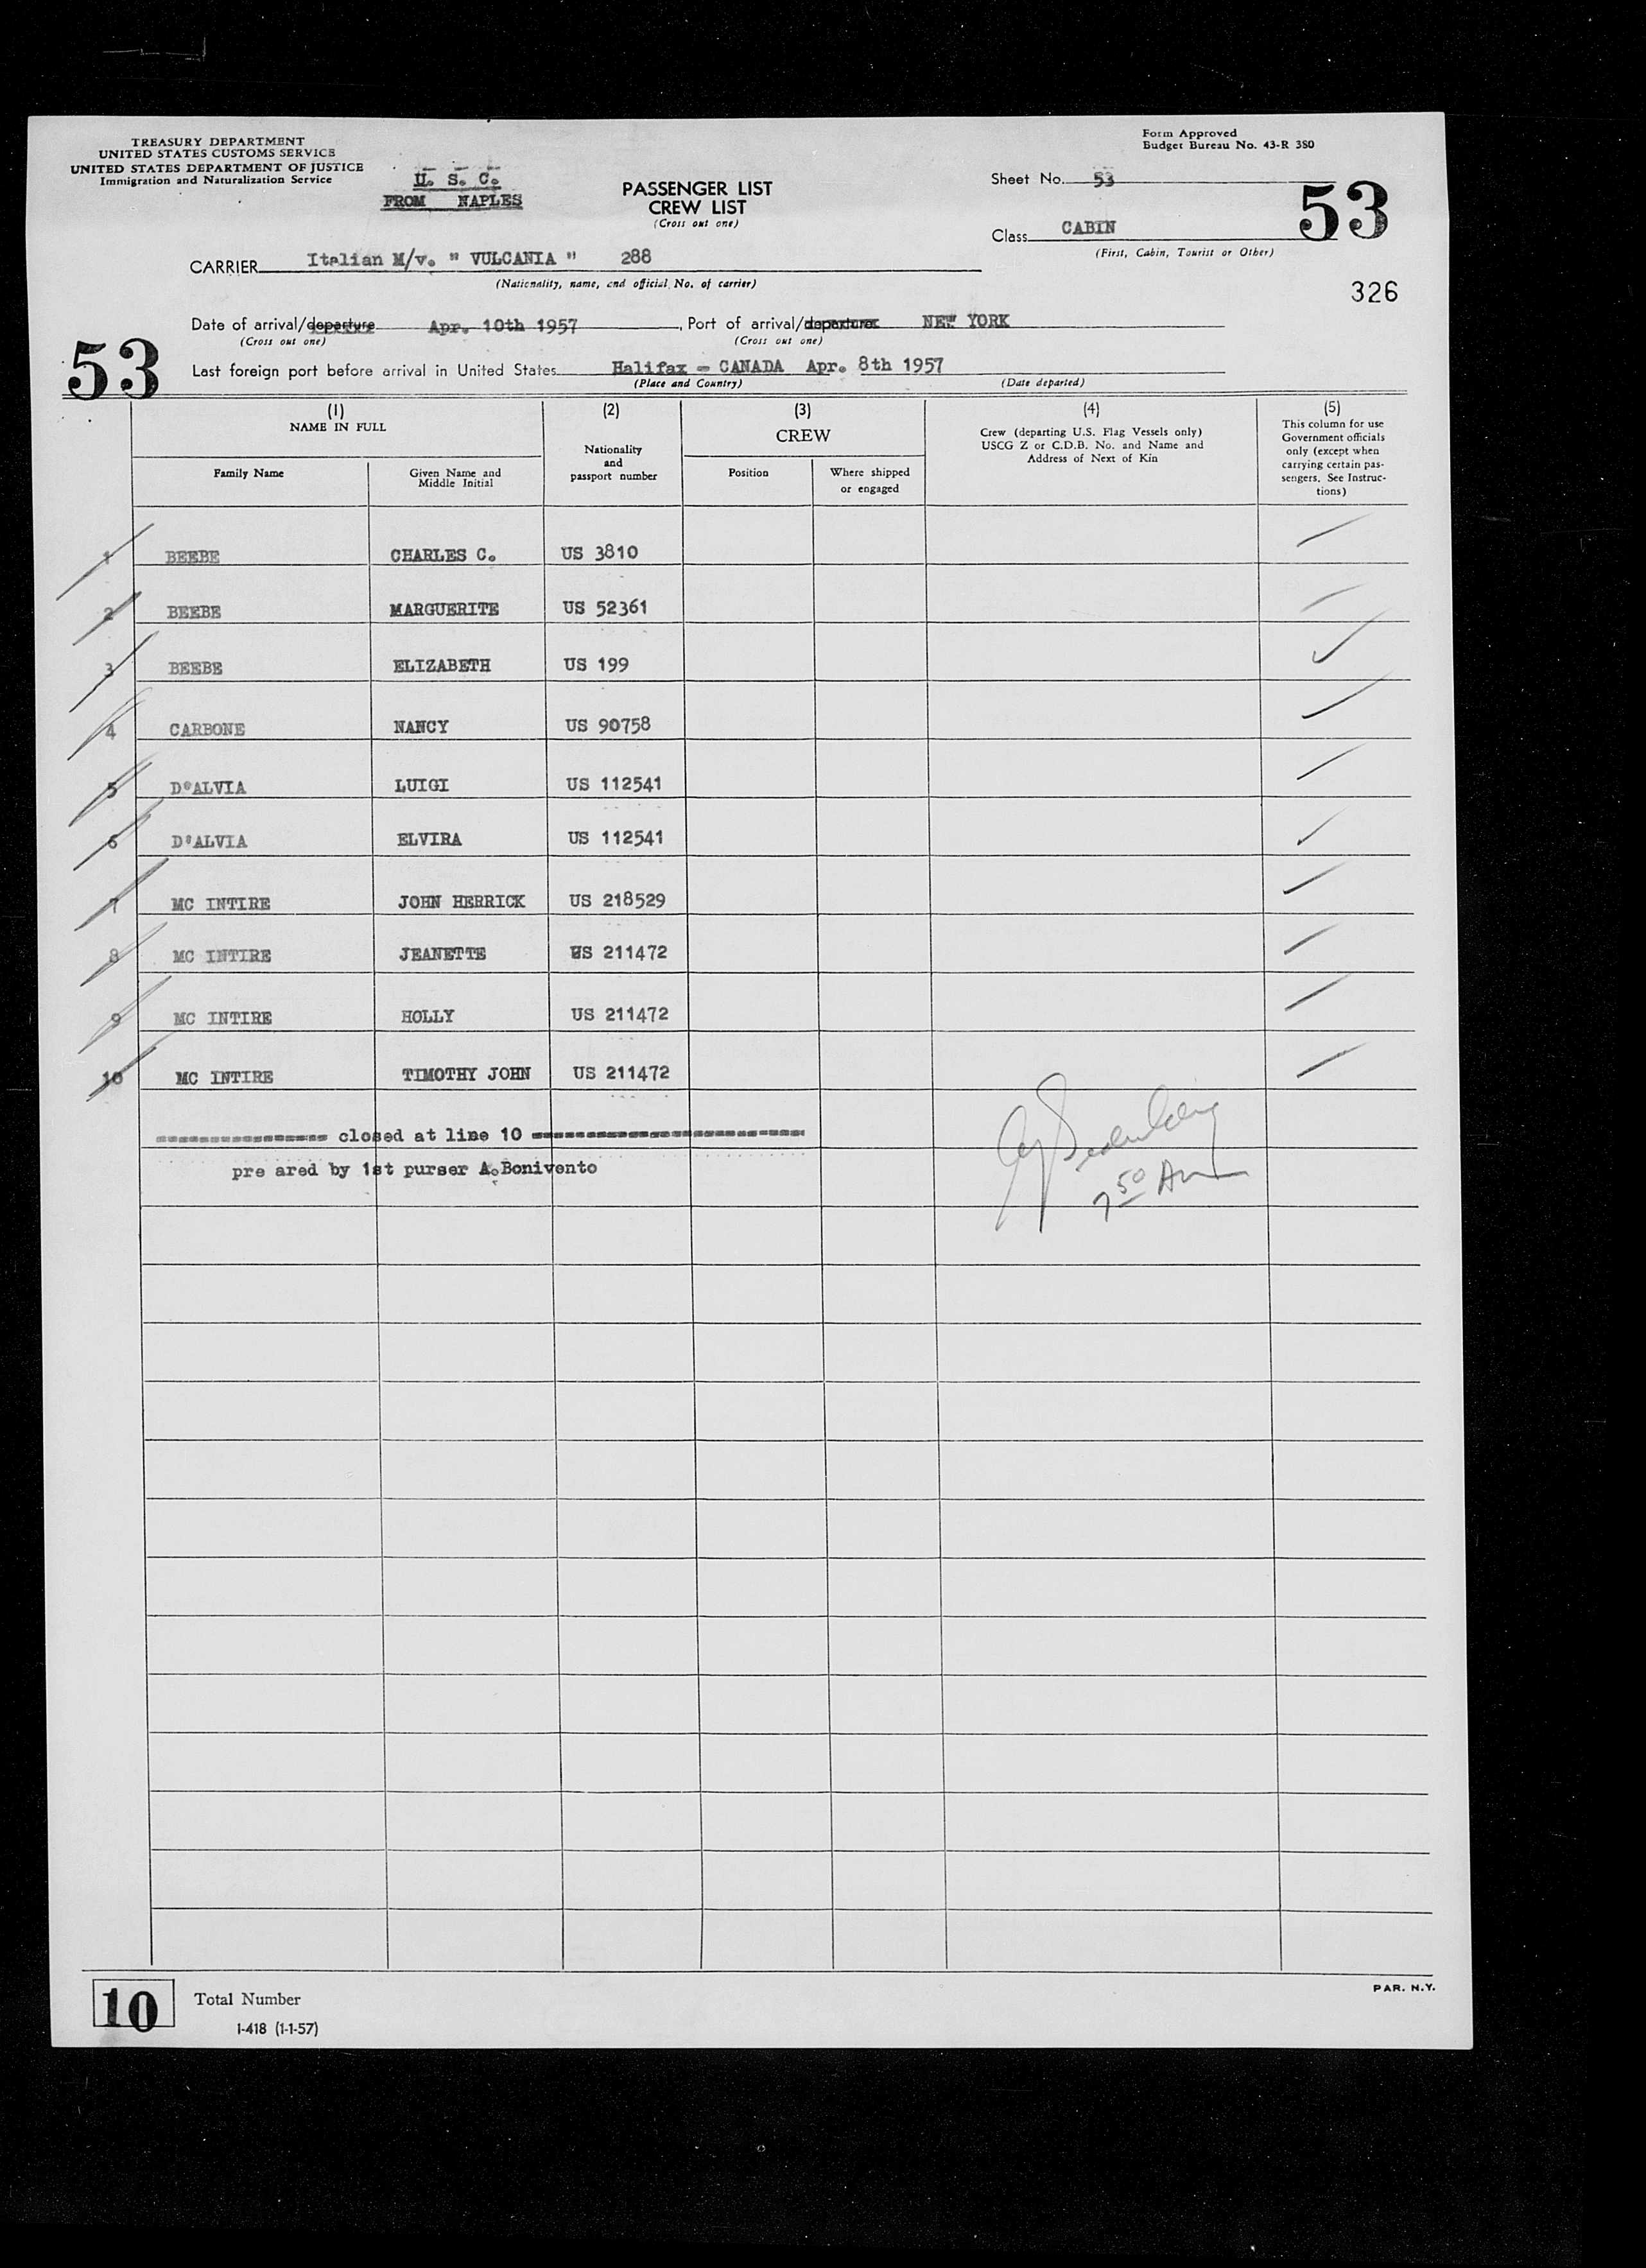 TREASURY DEPARTMENT
UNITED STATES CUSTOMS SERVICE
UNITED STATES DEPARTMENT OF JUSTICE
Immigration and Naturalization Service
U. S. C.
FROM NAPLES
PASSENGER LIST
CREW LIST
(Cross out one)
Form Approved
Budget Bureau No. 43-R 380
Sheet No. 53
53
Class CABIN
(First, Cabin, Tourist or Other)
CARRIER Italian M/v. " VULCANIA " 288
(Nationality, name, and official No. of carrier)
326
Date of arrival/departure Apr. 10th 1957, Port of arrival/departure NEW YORK
(Cross out one) (Cross out one)
53
Last foreign port before arrival in United States Halifax - CANADA Apr. 8th 1957
(Place and Country) (Date departed)
(1) NAME IN FULL
Family Name
Given Name and Middle Initial
(2)
Nationality and passport number
(3)
CREW
Position
Where shipped or engaged
(4)
Crew (departing U.S. Flag Vessels only)
USCG Z or C.D.B. No. and Name and
Address of Next of Kin
(5)
This column for use
Government officials
only (except when
carrying certain pas-
sengers. See Instruc-
tions)
1 BEEBE CHARLES C. US 3810
2 BEEBE MARGUERITE US 52361
3 BEEBE ELIZABETH US 199
4 CARBONE NANCY US 90758
5 D'ALVIA LUIGI US 112541
6 D'ALVIA ELVIRA US 112541
7 MC INTIRE JOHN HERRICK US 218529
8 MC INTIRE JEANETTE US 211472
9 MC INTIRE HOLLY US 211472
10 MC INTIRE TIMOTHY JOHN US 211472
closed at line 10
pre ared by 1st purser A.Bonivento
7 50 AM
10
Total Number
I-418 (1-1-57)
PAR. N.Y.